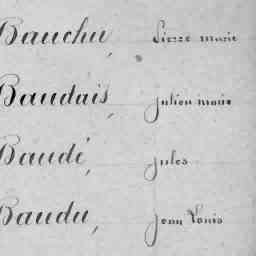 Bauchu, Pierre marie
Baudais, julien marie
Baudé, jules
Baudu, jean Louis